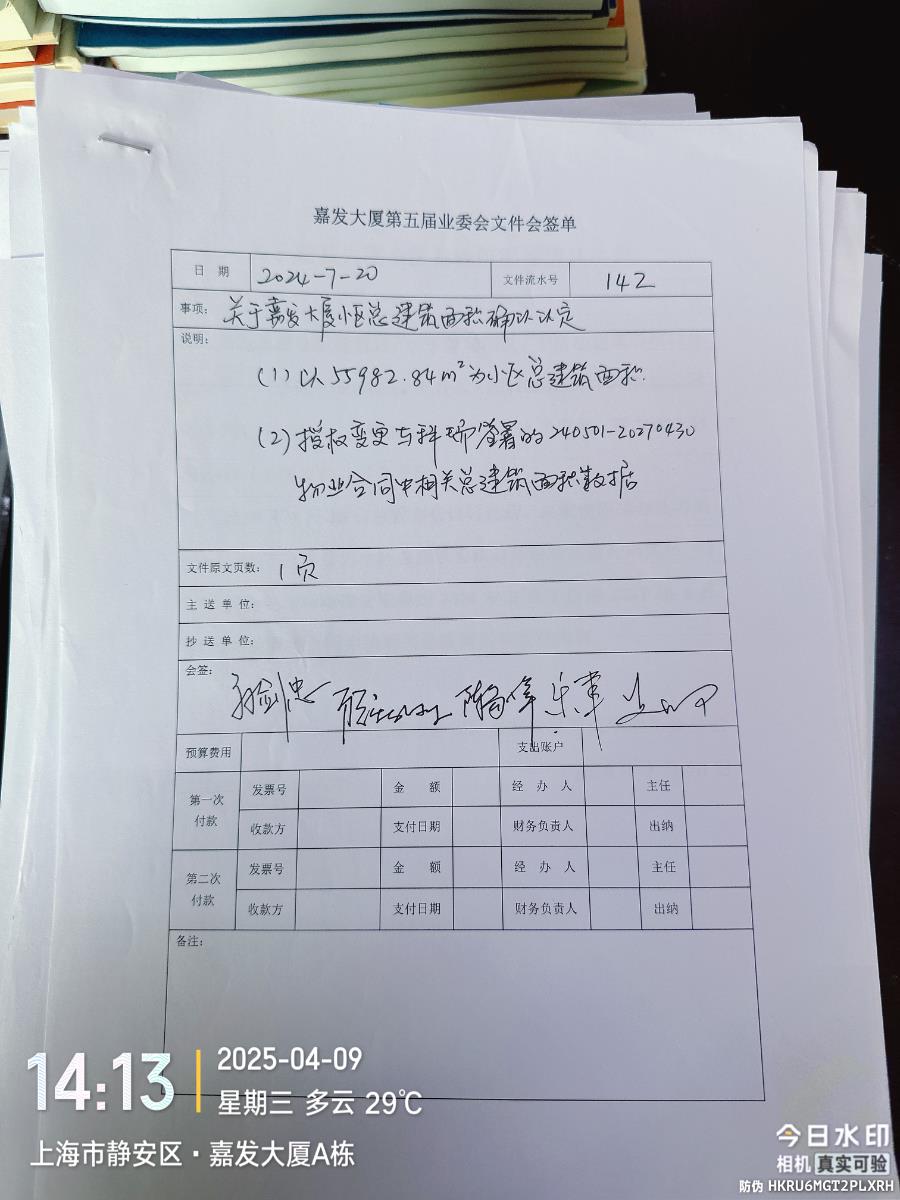 嘉发大厦第五届业委会文件会签单
日 期 2024-7-20 文件流水号 142
事项: 关于嘉发大厦小区总建筑面积确认认定
说明:
(1) 以55982.84m²为小区总建筑面积.
(2) 授权变更与科瑞签署的240501-20270430
物业合同中相关总建筑面积数据
文件原文页数: 1页
主 送 单 位:
抄 送 单 位:
会签:
预算费用 支出账户
第一次付款 发票号 金 额 经 办 人 主任
收款方 支付日期 财务负责人 出纳
第二次付款 发票号 金 额 经 办 人 主任
收款方 支付日期 财务负责人 出纳
备注:
14:13 2025-04-09
星期三 多云 29℃
上海市静安区·嘉发大厦A栋
今日水印
相机 真实可验
防伪 HKRU6MGT2PLXRH